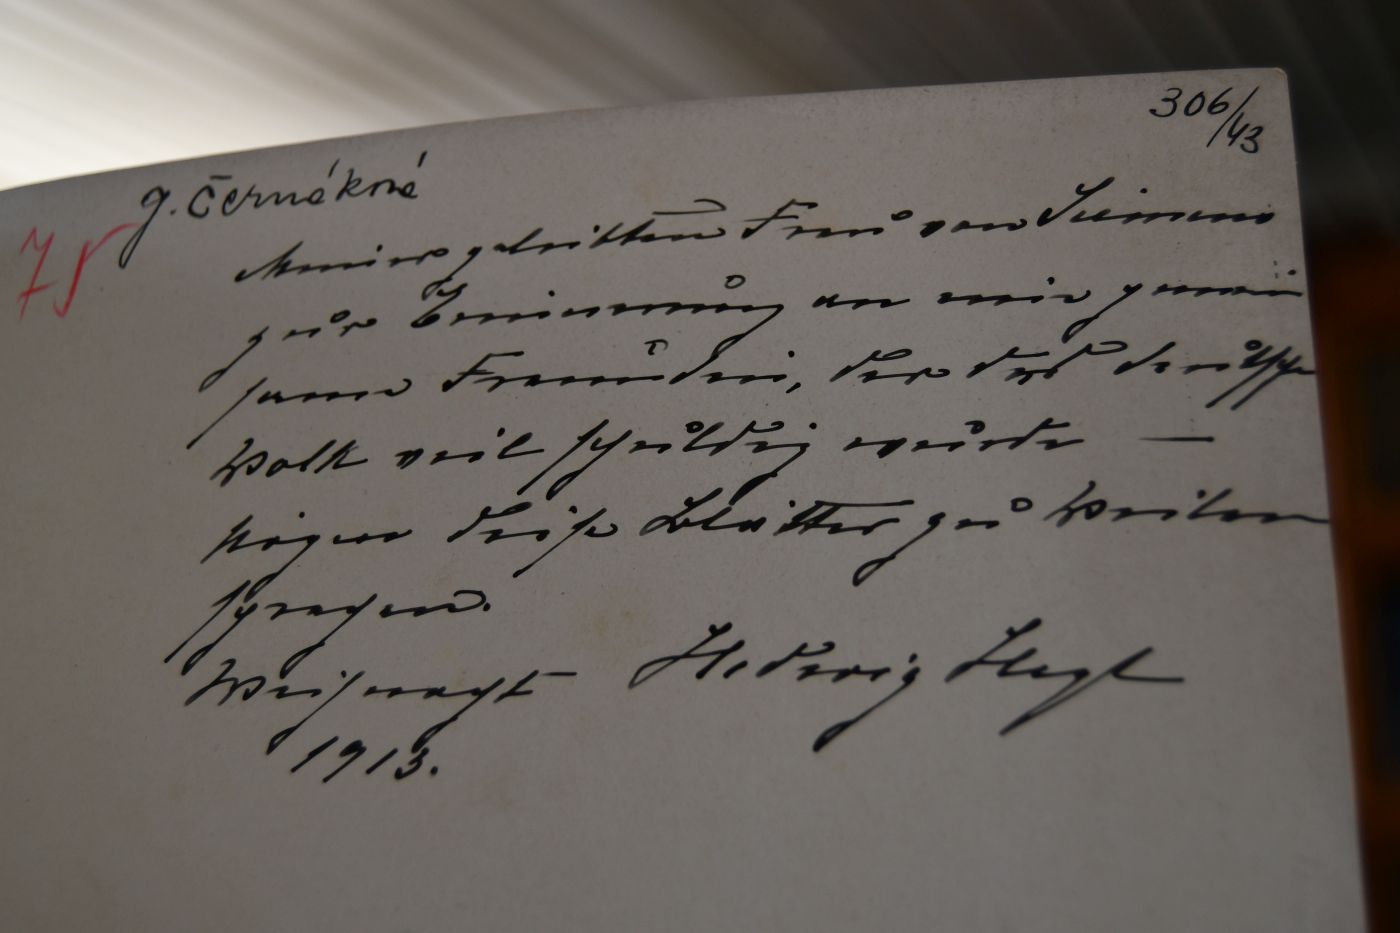 306/43
G. Černáková
75
Meiner geliebten Frau von Siemens
zur Erinnerung an eine gemein
same Freundin, der das deutsche
Volk viel schuldig wurde —
mögen diese Blätter zu Weilen
sprechen.
Weihnacht Hedwig
1913.